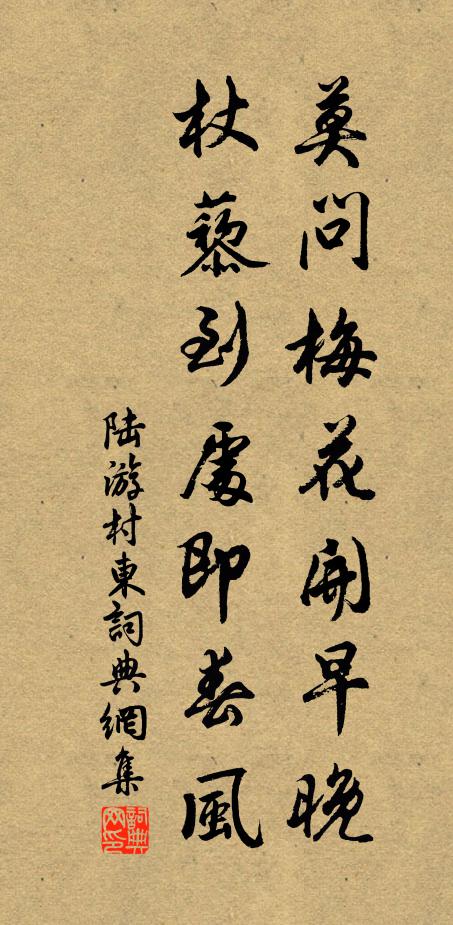 莫問梅花開早晚
杖藜到處即春風
陆游村東詞典網集
詞典网印